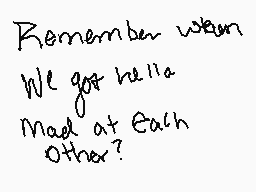 Remember when
We got hella
Mad at Each
Other?